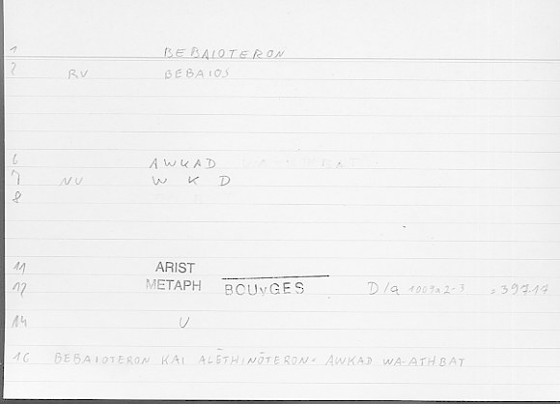 1 BEBAIOTERON
2 RV BEBAIOS
6 AWKAD
7 NV W K D
8
11 ARIST
12 METAPH BOUYGES D/a 1009a2-3 = 397.17
14 V
16 BEBAIOTERON KAI ALĒTHINŌTERON - AWKAD WA-ATHBAT